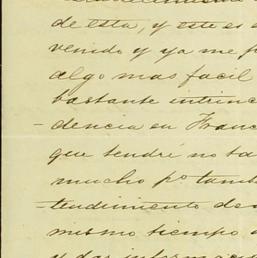 de esta, y este es
venido y ya me p
algo mas facil
bastante intrinc
dencia en Franc
que tendré no ta
mucho pº tamb
tendimiento de
mismo tiempo
y dar informac